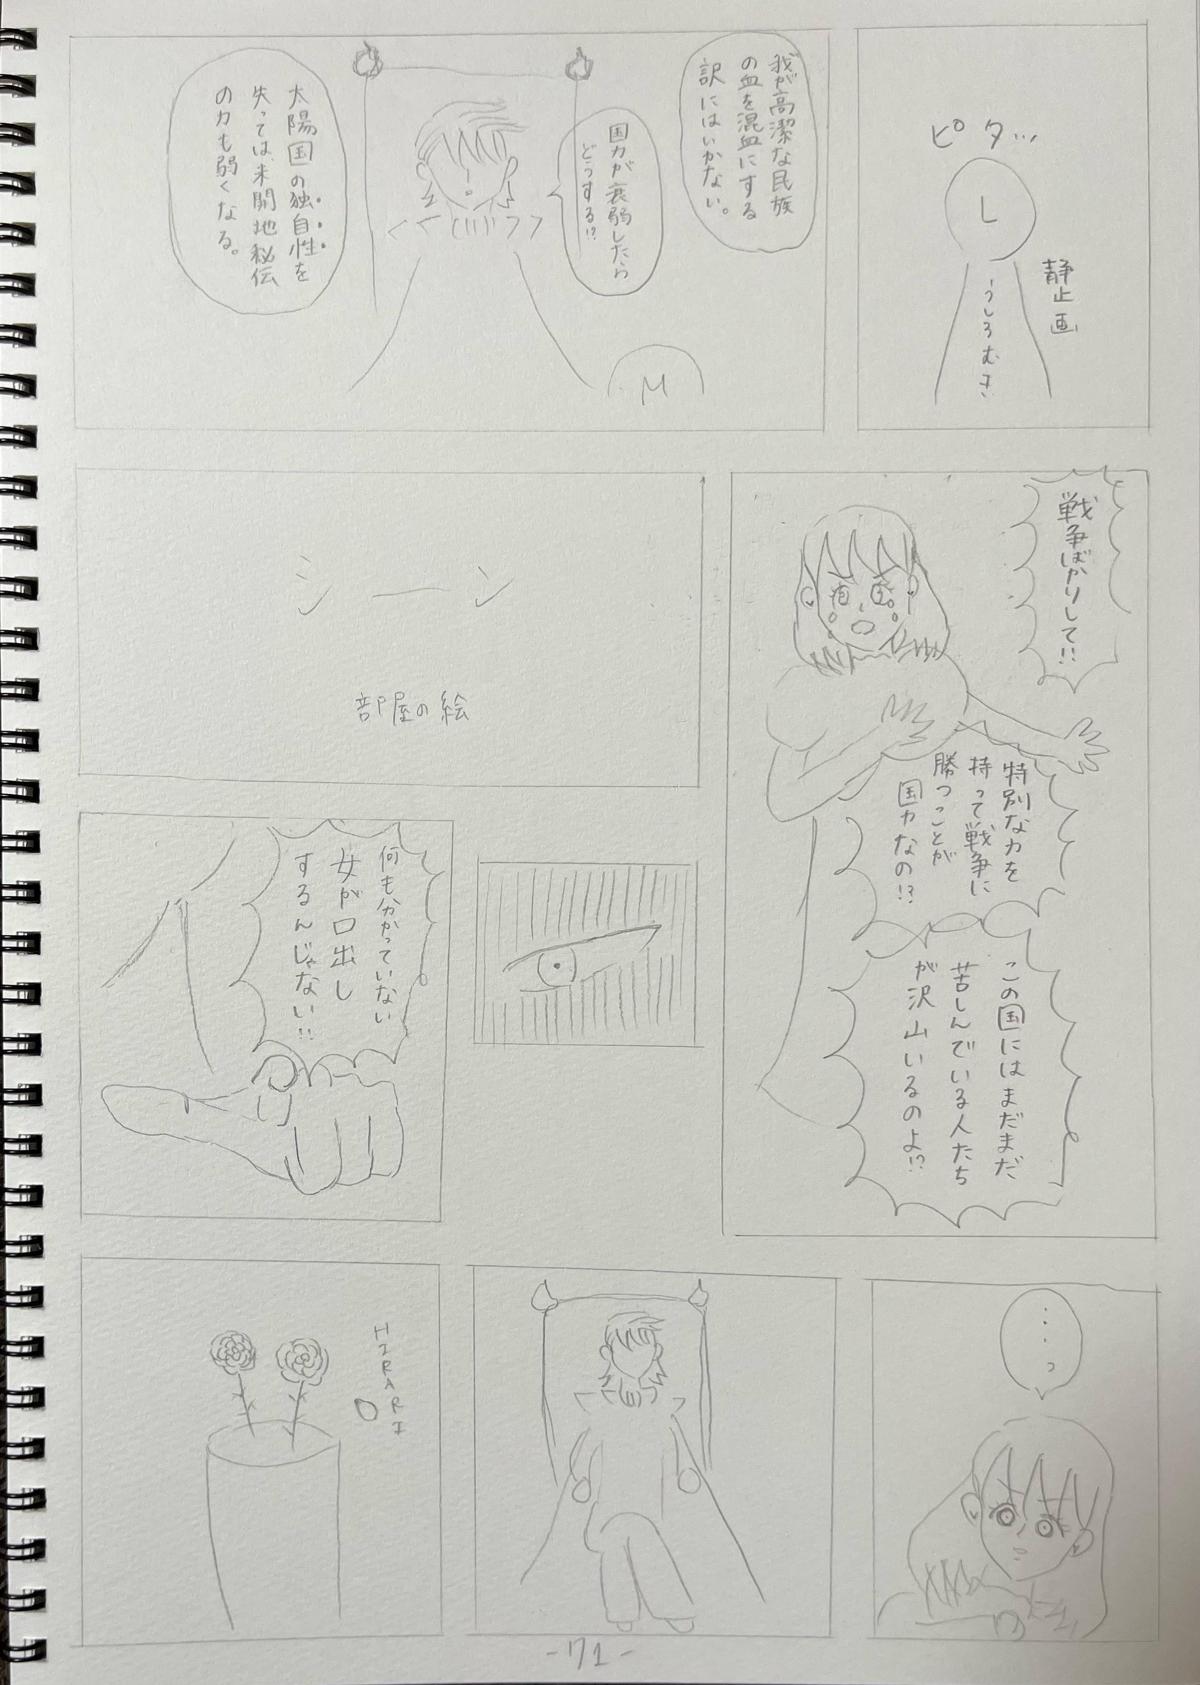 ピタ…
L
うしろむき
静止画
我が高潔な民族
の血を混血にする
訳にはいかない。
国力が衰弱したら
どうする!?
M
太陽国の独自性を
失っては、未開地秘伝
の力も弱くなる。
戦争ばかりして!!
特別な力を
持って戦争に
勝つことが
国力なの!?
この国にはまだまだ
苦しんでいる人たち
が沢山いるのよ!?
シーン
部屋の絵
何も分かっていない
女が口出し
するんじゃない!!
……っ
HIRARI
-71-